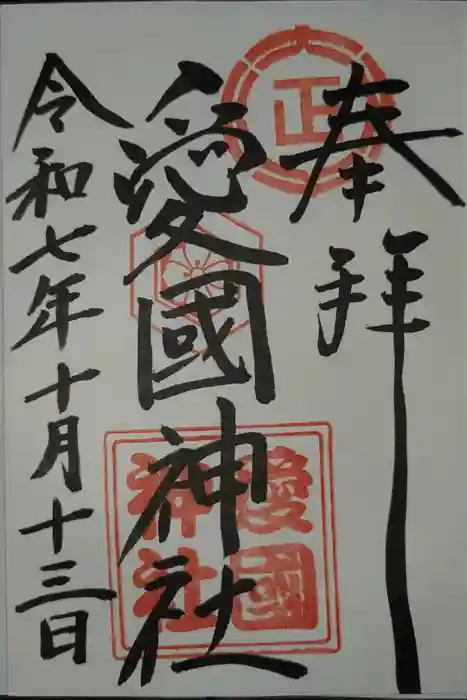 奉拝
正
愛國神社
愛國
神社
令和七年十月十三日